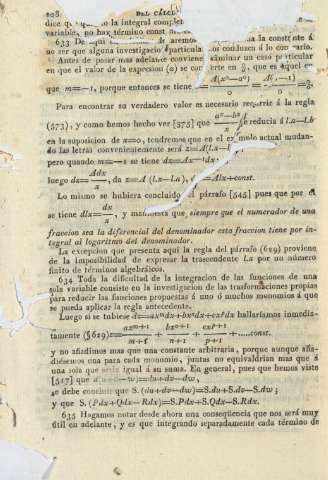 208. DEL CÁLCULO
dice que la integral completa
variable, no hay término constante
633 De aquí la constante á
no ser que alguna investigación particular nos conduzca á lo contrario.
Antes de pasar mas adelante conviene examinar un caso particular
en que el valor de la expresion (a) se convierte en 0/0, que es aquel en
que m=-1, porque entonces se tiene = A(x⁰-a⁰)/0 = A(1-1)/0 = 0/0.
Para encontrar su verdadero valor es necesario recurrir á la regla
(573), y como hemos hecho ver [375] que se reducia á l.a-l.b
en la suposicion de x=0, tendremos que en el exemplo actual mudan-
do las letras convenientemente será z=A(l.x-l.a)
pero quando m=-1 se tiene dz=Ax⁻¹dx
luego dz=Adx/x, da z=A (l.x-l.a), ó =Alx+const.
Lo mismo se hubiera concluido del párrafo [545] pues que por él
se tiene dlx=dx/x, y manifiesta que, siempre que el numerador de una
fraccion sea la diferencial del denominador esta fraccion tiene por in-
tegral al logaritmo del denominador.
La excepcion que presenta aquí la regla del párrafo (629) proviene
de la imposibilidad de expresar la trascendente l.x por un número
finito de términos algebraicos.
634 Toda la dificultad de la integracion de las funciones de una
sola variable consiste en la investigacion de las trasformaciones propias
para reducir las funciones propuestas á uno ó muchos monomios á que
se pueda aplicar la regla antecedente.
Luego si se tubiese dz=axᵐdx+bxⁿdx+cxᵖdx hallaríamos inmedia-
tamente (§629)z= axᵐ⁺¹/m+1 + bxⁿ⁺¹/n+1 + cxᵖ⁺¹/p+1 +....const.
y no añadimos mas que una constante arbitraria, porque aunque aña-
diésemos una para cada monomio, juntas no equivaldrian mas que á
una sola que sería igual á su suma. En general, pues que hemos visto
[517] que d(u+v-w)=du+dv-dw,
se debe concluir que S. (du+dv-dw)=S.du+S.dv-S.dw;
y que S. (Pdx+Qdx-Rdx)=S.Pdx+S.Qdx-S.Rdx.
635 Hagamos notar desde ahora una conseqüencia que nos será muy
útil en adelante, y es que integrando separadamente cada término de